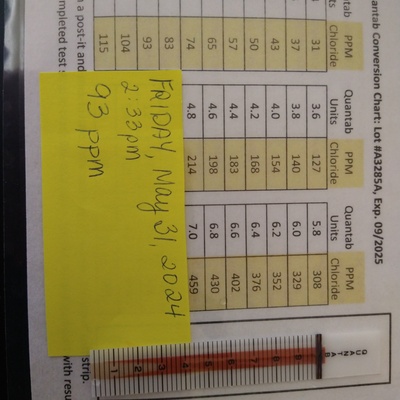 uantab Conversion Chart: Lot #A3285A, Exp. 09/2025
Quantab Units PPM Chloride Quantab Units PPM Chloride Quantab Units PPM Chloride
31 3.6 127 5.8 308
37 3.8 140 6.0 329
43 4.0 154 6.2 352
50 4.2 168 6.4 376
57 4.4 183 6.6 402
65 4.6 198 6.8 430
74 4.8 214 7.0 459
83
93
104
115
a post-it and strip.
ompleted test with resu
FRIDAY, May 31, 2024
2:33pm
93 ppm
QUANTAB
9
8
7
6
5
4
3
2
1